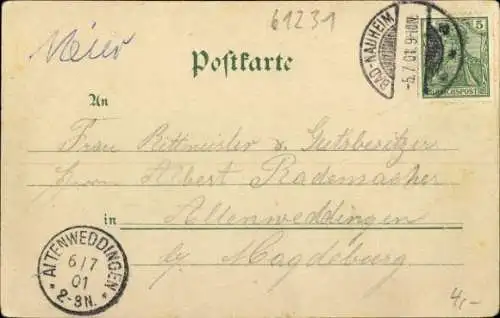 61231
Meier
Postkarte
BAD-NAUHEIM
-5.7.01.9-10N.
5
REICHSPOST
An
Frau Rittmeister u. Gutsbesitzer
Herrn Albert Rademacher
in Altenweddingen
by Magdeburg
ALTENWEDDINGEN
6/7
01
2-3N.
4,-